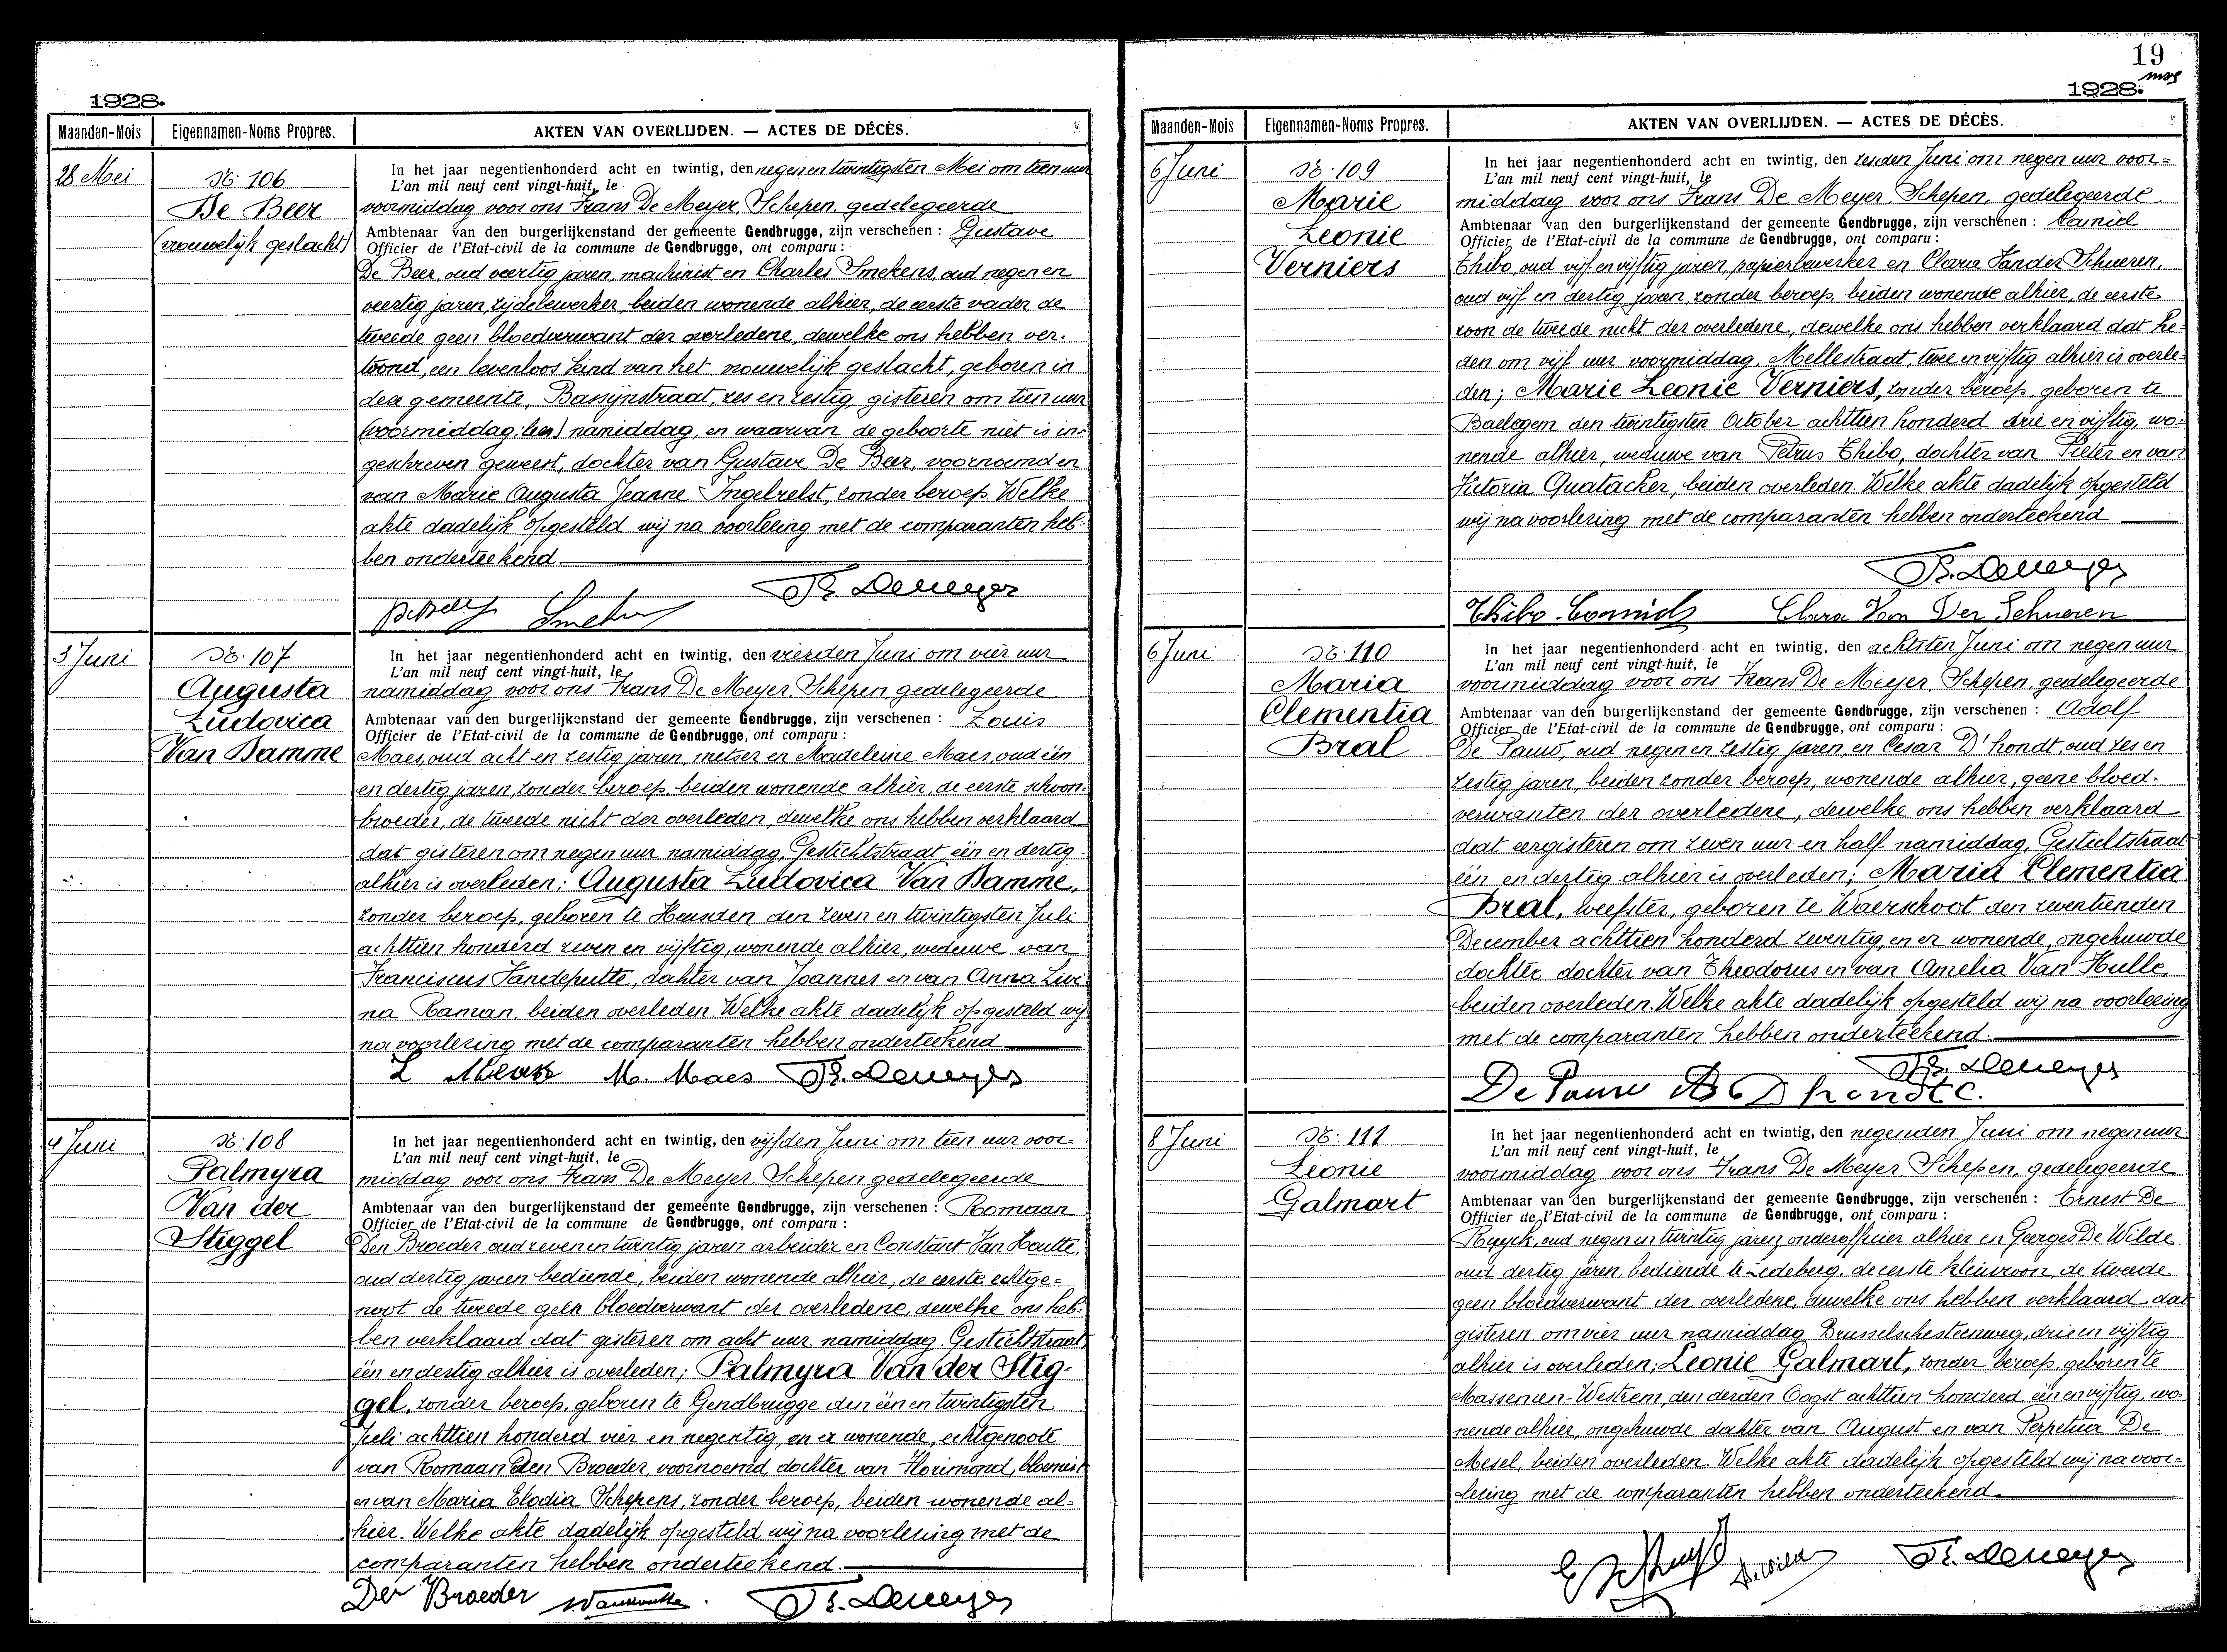 1928.
Maanden-Mois
Eigennamen-Noms Propres.
AKTEN VAN OVERLIJDEN. — ACTES DE DÉCÈS.
28 Mei
No. 106
De Beer
(vrouwelijk geslacht)
In het jaar negentienhonderd acht en twintig, den negen en twintigsten Mei om tien uur
L'an mil neuf cent vingt-huit, le
voormiddag voor ons Frans De Meyer, Schepen, gedelegeerde
Ambtenaar van den burgerlijkenstand der gemeente Gendbrugge, zijn verschenen : Gustave
Officier de l'Etat-civil de la commune de Gendbrugge, ont comparu :
De Beer, oud veertig jaren, machinist en Charles Smekens, oud negen en
veertig jaren, zijdebewerker, beiden wonende alhier, de eerste vader, de
tweede geen bloedverwant der overledene, dewelke ons hebben ver-
toond, een levenloos kind van het vrouwelijk geslacht, geboren in
deze gemeente, Bassijnstraat, zes en zestig, gisteren om tien uur
(voormiddag lees) namiddag, en waarvan de geboorte niet is in-
geschreven geweest, dochter van Gustave De Beer, voornoemd en
van Marie Augusta Jeanne Ingelrelst, zonder beroep. Welke
akte dadelijk opgesteld wij na voorlezing met de comparanten heb-
ben onderteekend
Fr. Demeyer
3 Juni
No. 107
Augusta
Ludovica
Van Damme
In het jaar negentienhonderd acht en twintig, den vierden Juni om vier uur
L'an mil neuf cent vingt-huit, le
namiddag voor ons Frans De Meyer, Schepen, gedelegeerde
Ambtenaar van den burgerlijkenstand der gemeente Gendbrugge, zijn verschenen : Louis
Officier de l'Etat-civil de la commune de Gendbrugge, ont comparu :
Maes, oud acht en zestig jaren, metser en Madeleine Maes, oud één
en dertig jaren, zonder beroep, beiden wonende alhier, de eerste schoon-
broeder, de tweede nicht der overleden, dewelke ons hebben verklaard
dat gisteren om negen uur namiddag, Gestichtstraat, één en dertig
alhier is overleden; Augusta Ludovica Van Damme,
zonder beroep, geboren te Heusden den zeven en twintigsten Juli
achttien honderd zeven en vijftig, wonende alhier, weduwe van
Franciscus Vandeputte, dochter van Joannes en van Anna Livi-
na Raman, beiden overleden. Welke akte dadelijk opgesteld wij
na voorlezing met de comparanten hebben onderteekend
L Maes M. Maes Fr. Demeyer
4 Juni
No. 108
Palmyra
Van der
Stiggel
In het jaar negentienhonderd acht en twintig, den vijfden Juni om tien uur voor-
L'an mil neuf cent vingt-huit, le
middag voor ons Frans De Meyer, Schepen gedelegeerde
Ambtenaar van den burgerlijkenstand der gemeente Gendbrugge, zijn verschenen : Romaan
Officier de l'Etat-civil de la commune de Gendbrugge, ont comparu :
Den Broeder oud zeven en twintig jaren arbeider en Constant Van Houtte,
oud dertig jaren bediende, beiden wonende alhier, de eerste echtge-
noot de tweede geen bloedverwant der overledene, dewelke ons heb-
ben verklaard dat gisteren om acht uur namiddag, Gestichtstraat
één en dertig alhier is overleden; Palmyra Van der Stig-
gel, zonder beroep, geboren te Gendbrugge den één en twintigsten
Juli achttien honderd vier en negentig, en er wonende, echtgenoote
van Romaan Den Broeder, voornoemd, dochter van Florimond, bloemist
en van Maria Elodia Schepens, zonder beroep, beiden wonende al-
hier. Welke akte dadelijk opgesteld wij na voorlezing met de
comparanten hebben onderteekend.
Den Broeder Vanhoutte Fr. Demeyer
19
1928.
Maanden-Mois
Eigennamen-Noms Propres.
AKTEN VAN OVERLIJDEN. — ACTES DE DÉCÈS.
6 Juni
No. 109
Marie
Leonie
Verniers
In het jaar negentienhonderd acht en twintig, den zesden Juni om negen uur voor-
L'an mil neuf cent vingt-huit, le
middag voor ons Frans De Meyer, Schepen, gedelegeerde
Ambtenaar van den burgerlijkenstand der gemeente Gendbrugge, zijn verschenen : Camiel
Officier de l'Etat-civil de la commune de Gendbrugge, ont comparu :
Thibo, oud vijf en vijftig jaren, papierbewerker en Clara Vander Schueren,
oud vijf en dertig jaren zonder beroep, beiden wonende alhier, de eerste
zoon de tweede nicht der overledene, dewelke ons hebben verklaard dat he-
den om vijf uur voormiddag, Mellestraat, twee en vijftig alhier is overle-
den; Marie Leonie Verniers, zonder beroep, geboren te
Baelegem den twintigsten October achttien honderd drie en vijftig, wo-
nende alhier, weduwe van Petrus Thibo, dochter van Pieter en van
Victoria Quatacker, beiden overleden. Welke akte dadelijk opgesteld
wij na voorlezing met de comparanten hebben onderteekend
Fr. Demeyer
Thibo Camiel Clara Van Der Schueren
6 Juni
No. 110
Maria
Clementia
Bral
In het jaar negentienhonderd acht en twintig, den achtsten Juni om negen uur
L'an mil neuf cent vingt-huit, le
voormiddag voor ons Frans De Meyer, Schepen, gedelegeerde
Ambtenaar van den burgerlijkenstand der gemeente Gendbrugge, zijn verschenen : Adolf
Officier de l'Etat-civil de la commune de Gendbrugge, ont comparu :
De Pauw, oud negen en zestig jaren, en Cesar D'hondt, oud zes en
zestig jaren, beiden zonder beroep, wonende alhier, geene bloed-
verwanten der overledene, dewelke ons hebben verklaard
dat eergisteren om zeven uur en half namiddag, Gestichtstraat
één en dertig alhier is overleden; Maria Clementia
Bral, weefster, geboren te Waerschoot den zeventienden
December achttien honderd zeventig, en er wonende, ongehuwde
dochter dochter van Theodorus en van Amelia Van Hulle,
beiden overleden. Welke akte dadelijk opgesteld wij na voorlezing
met de comparanten hebben onderteekend.
Fr. Demeyer
De Pauw A D'hondt C.
8 Juni
No. 111
Leonie
Galmart
In het jaar negentienhonderd acht en twintig, den negenden Juni om negen uur
L'an mil neuf cent vingt-huit, le
voormiddag voor ons Frans De Meyer, Schepen, gedelegeerde
Ambtenaar van den burgerlijkenstand der gemeente Gendbrugge, zijn verschenen : Ernest De
Officier de l'Etat-civil de la commune de Gendbrugge, ont comparu :
Ruyck, oud negen en twintig jaren, onderofficier alhier en Georges De Wilde
oud dertig jaren, bediende te Ledeberg, de eerste kleinzoon, de tweede
geen bloedverwant der overledene, dewelke ons hebben verklaard dat
gisteren om vier uur namiddag Brusselschesteenweg, drie en vijftig
alhier is overleden; Leonie Galmart, zonder beroep, geboren te
Massemen-Westrem, den derden Oogst achttien honderd één en vijftig, wo-
nende alhier, ongehuwde dochter van August en van Perpetua De
Mesel, beiden overleden. Welke akte dadelijk opgesteld wij na voor-
lezing met de comparanten hebben onderteekend.
De Wilde Fr. Demeyer